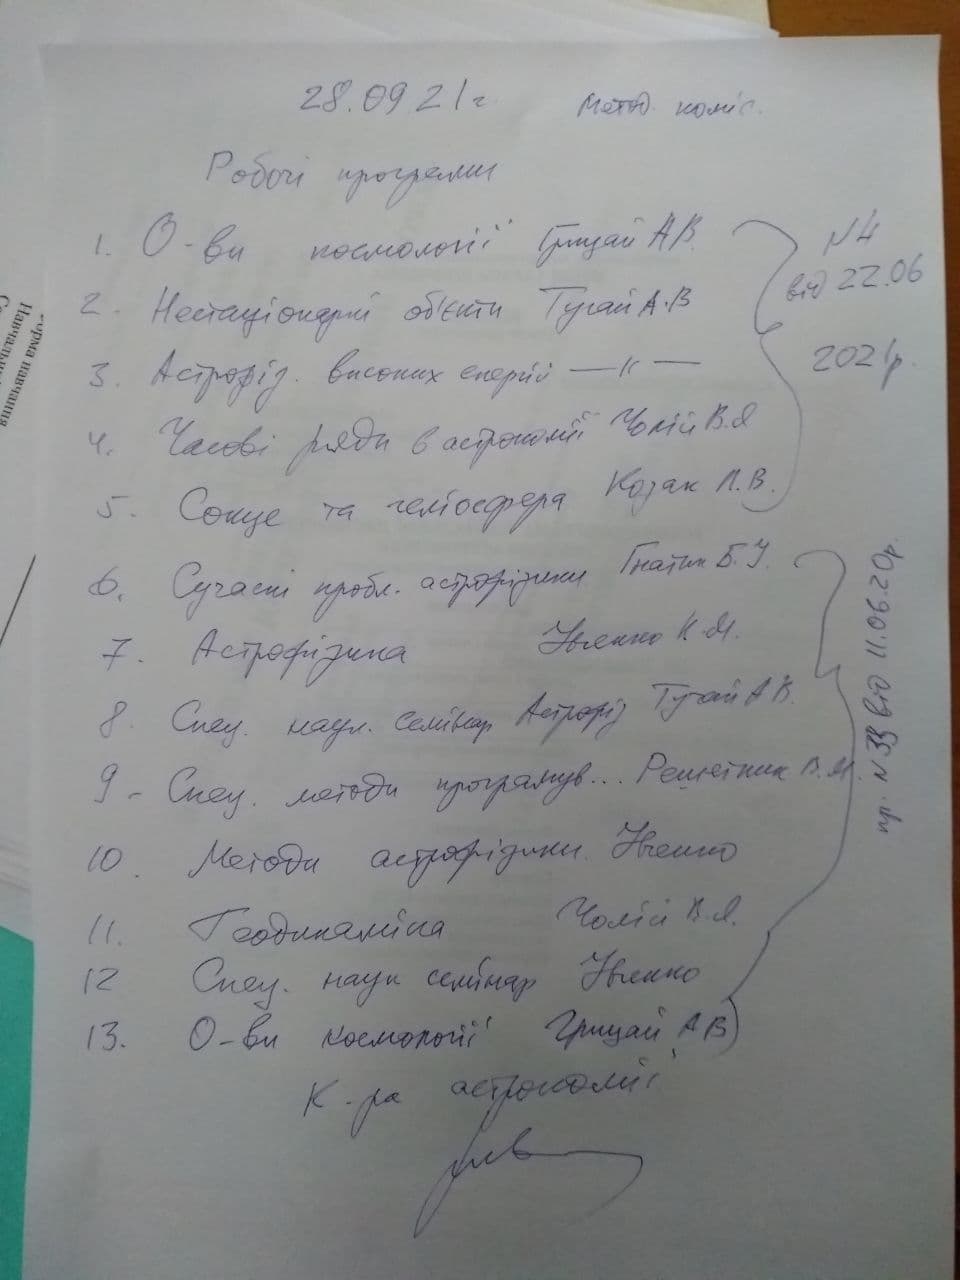 28.09.21г. Метод. коміс.
Робочі програми
1. О-ви космології Грицай А.В.
2. Нестаціонарні об'єкти Тугай А.В
3. Астрофіз. високих енергій —"—
4. Часові ряди в астрономії Чолій В.Я
5. Сонце та геліосфера Козак Л.В.
N4
від 22.06
2021р.
6. Сучасні пробл. астрофізики Гнатик Б.І.
7. Астрофізика Івченко В.М.
8. Спец. наук. семінар Астрофіз Тугай А В.
9 - Спец. методи програмув... Решетник В.М.
10. Методи астрофізики. Івченко
11. Геодинаміка Чолій В.Я.
12 Спец. наук семінар Івченко
13. О-ви космології Грицай А В
пр. N 39 від 11.06.20р.
К-ра астрономії